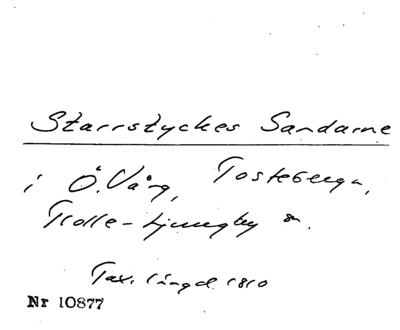 Starrstyckes Sandarne
i Ö. Vång, Tosteberga,
Trolle-Ljungby sn.
Tax. längd 1810
Nr 10877